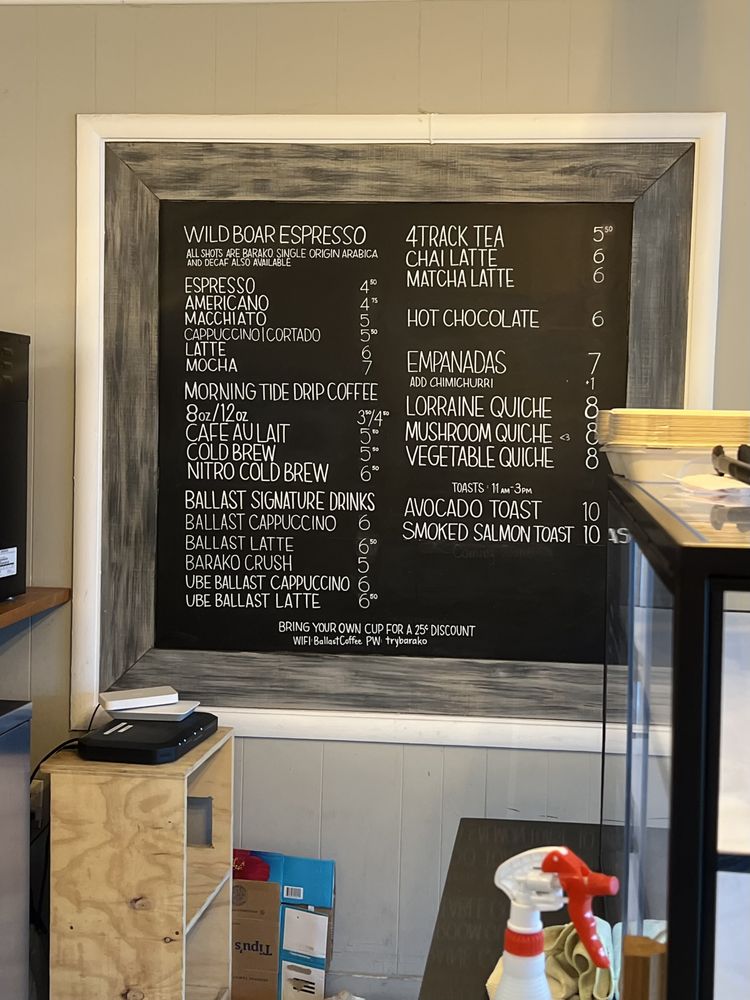 WILD BOAR ESPRESSO
ALL SHOTS ARE BARAKO SINGLE ORIGIN ARABICA
AND DECAF ALSO AVAILABLE
ESPRESSO 4⁵⁰
AMERICANO 4⁷⁵
MACCHIATO 5
CAPPUCCINO|CORTADO 5⁵⁰
LATTE 6
MOCHA 7
MORNING TIDE DRIP COFFEE
8oz/12oz 3⁵⁰/4⁵⁰
CAFE AU LAIT 5⁵⁰
COLD BREW 5⁵⁰
NITRO COLD BREW 6⁵⁰
BALLAST SIGNATURE DRINKS
BALLAST CAPPUCCINO 6
BALLAST LATTE 6⁵⁰
BARAKO CRUSH 5
UBE BALLAST CAPPUCCINO 6
UBE BALLAST LATTE 6⁵⁰
4TRACK TEA 5⁵⁰
CHAI LATTE 6
MATCHA LATTE 6
HOT CHOCOLATE 6
EMPANADAS 7
ADD CHIMICHURRI +1
LORRAINE QUICHE 8
MUSHROOM QUICHE <3 8
VEGETABLE QUICHE 8
TOASTS · 11AM-3PM
AVOCADO TOAST 10
SMOKED SALMON TOAST 10
BRING YOUR OWN CUP FOR A 25¢ DISCOUNT
WIFI: BallastCoffee PW: trybarako
Tipu's